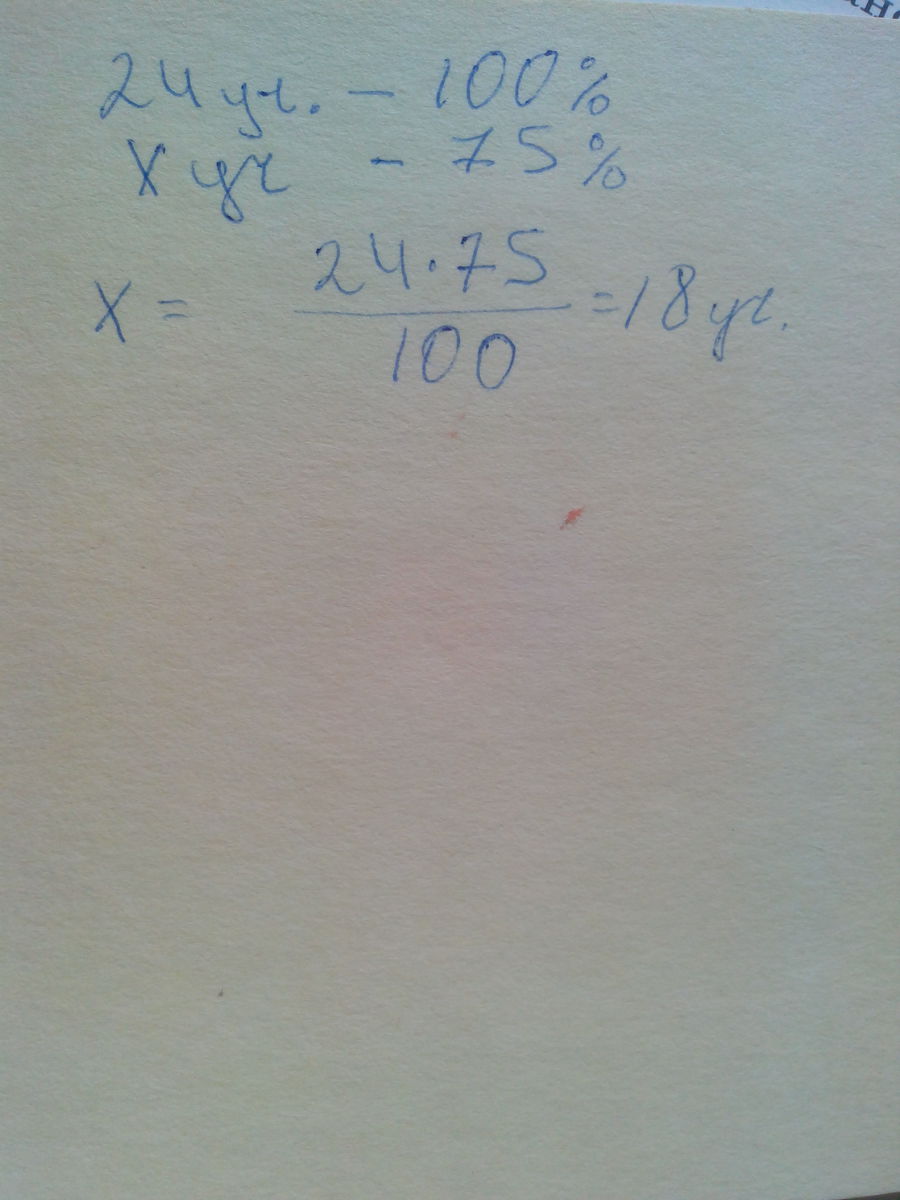 24 уч. - 100%
X уч - 75%
X = 24·75 / 100 = 18 уч.